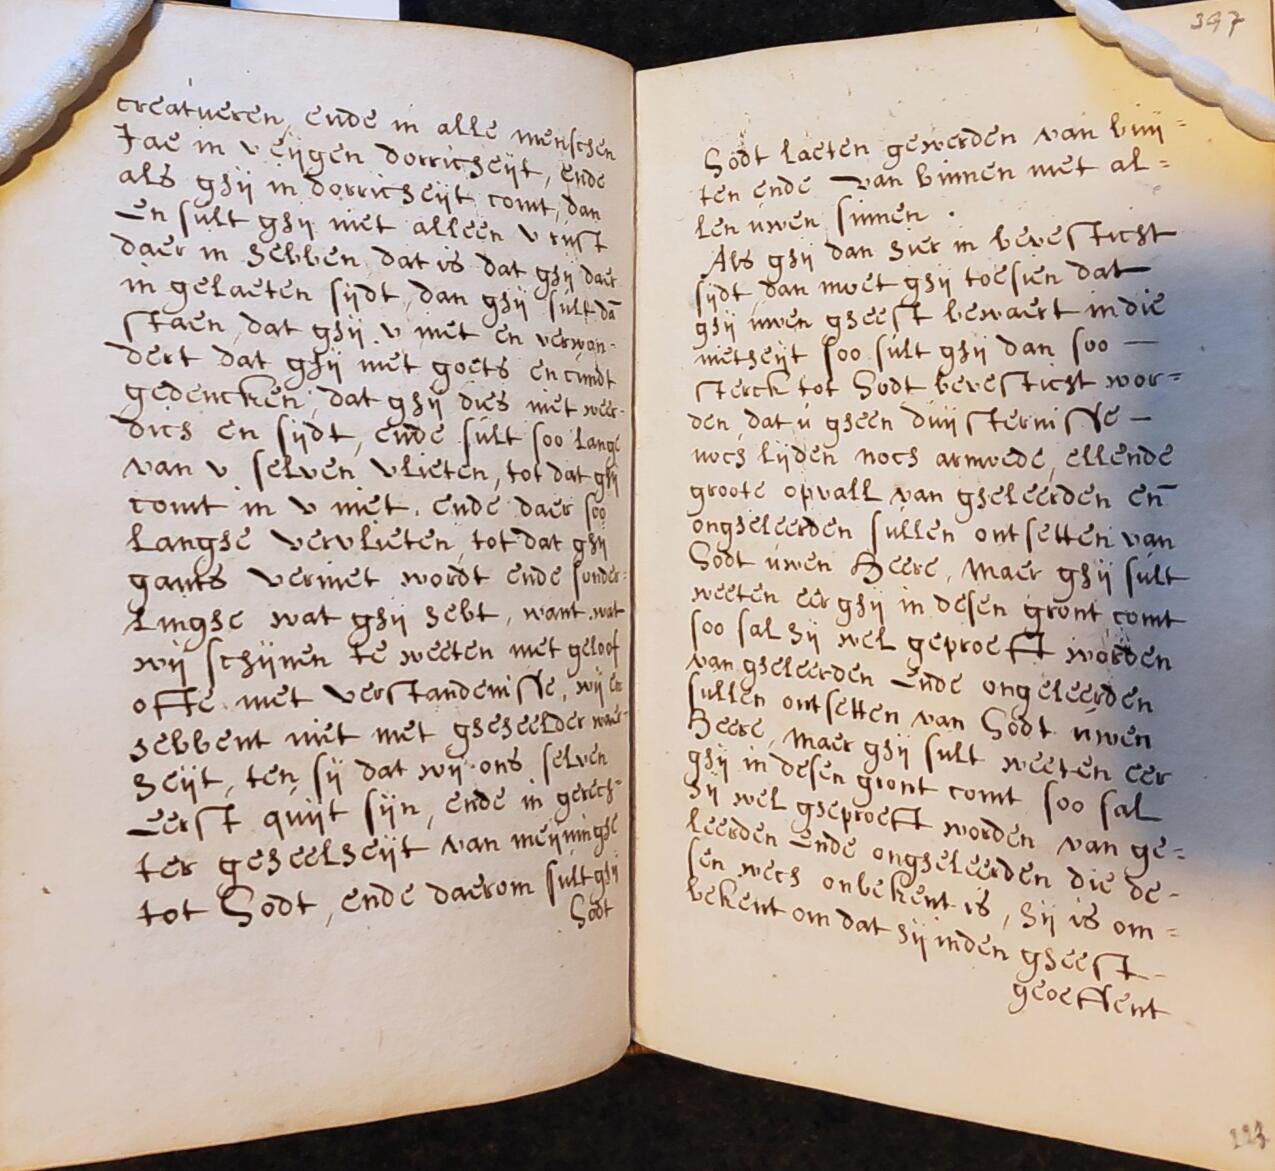 creatueren, ende in alle menschen
Jae in v eijgen dorricheijt, ende
als ghij in dorricheijt comt, dan
en sult ghij niet alleen v rust
daer in hebben dat is dat ghij daer
in gelaeten sijdt, dan ghij sult dā
staen, dat ghij v niet en verwon-
dert dat ghij niet goets en cundt
gedencken, dat ghij dies niet weer-
dich en sijdt, ende sult soo lange
van v selven vlieten, tot dat ghij
comt in v niet. ende daer soo
langhe vervlieten, tot dat ghij
gants verniet wordt ende sunder-
linghe wat ghij hebt, want wat
wij schijnen te weeten met geloof
ofte met verstandenisse, wij en
hebbent niet met gheheelder waer-
heijt, ten sij dat wij ons selven
eerst quijt sijn, ende in gerech-
ter geheelheijt van meijninghe
tot Godt, ende daerom sult ghij
Godt
347
Godt laeten gewerden van buij=
ten ende van binnen met al=
len uwen sinnen.
Als ghij dan hier in bevesticht
sijdt dan moet ghij toesien dat
ghij uwen gheest bewaert in die
nietheijt soo sult ghij dan soo —
sterck tot Godt bevesticht wor=
den, dat u gheen duijsternisse —
noch lijden noch armoede, ellende
groote opvall van gheleerden eñ
ongheleerden sullen ontsetten van
Godt uwen Heere, Maer ghij sult
weeten eer ghij in desen gront comt
soo sal hij wel geproeft worden
van gheleerden ende ongeleerden
sullen ontsetten van Godt uwen
Heere, Maer ghij sult weeten eer
ghij in desen gront comt soo sal
hij wel gheproeft worden van ge=
leerden ende ongheleerden die de-
sen wech onbekent is, hij is om=
bekent om dat hij inden gheest-
geoeffent